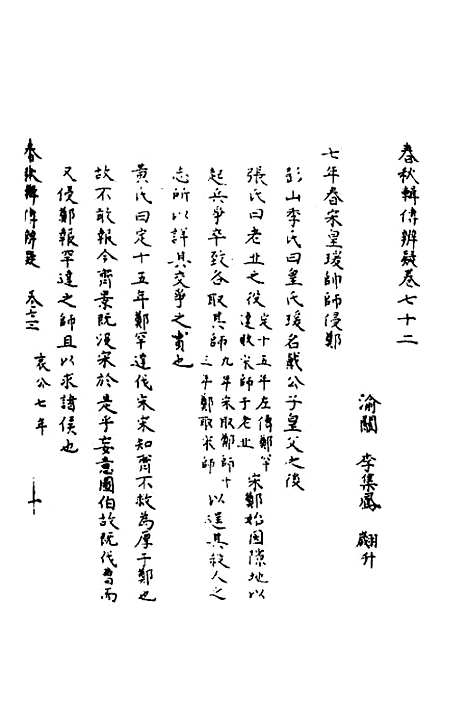 春秋輯傳辨疑卷七十二
渝關 李集鳳 翽升
七年春宋皇瑗帥師侵鄭
彭山李氏曰皇氏瑗名戴公子皇父之後
張氏曰老丘之役定十五年左傳鄭罕達敗宋師于老丘宋鄭始因隙地以
起兵爭卒致各取其師九年宋取鄭師十三年鄭取宋師以逞其殺人之
志所以詳其交爭之實也
黃氏曰定十五年鄭罕達伐宋宋知齊不救為厚于鄭也
故不敢報今齊景既沒宋於是乎妄意圖伯故既伐曹而
又侵鄭報罕達之師且以求諸侯也
春秋輯傳辨疑 卷七十二 哀公七年 一